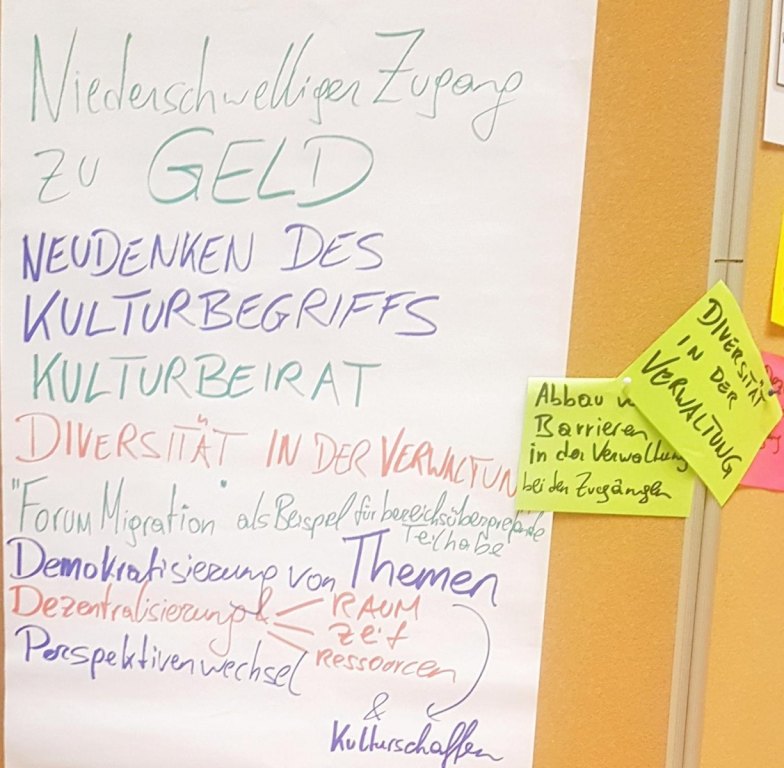 Niederschwelliger Zugang
zu GELD
NEUDENKEN DES
KULTURBEGRIFFS
KULTURBEIRAT
DIVERSITÄT IN DER VERWALTUN
"Forum Migration" als Beispiel für bereichsübergreifende
Teilhabe
Demokratisierung von Themen
Dezentralisierung
RAUM
Zeit
Ressourcen
Perspektivenwechsel
&
Kulturschaffen
Abbau v
Barrieren
in der Verwaltung
bei den Zugängen
DIVERSITÄT
IN DER
VERWALTUNG